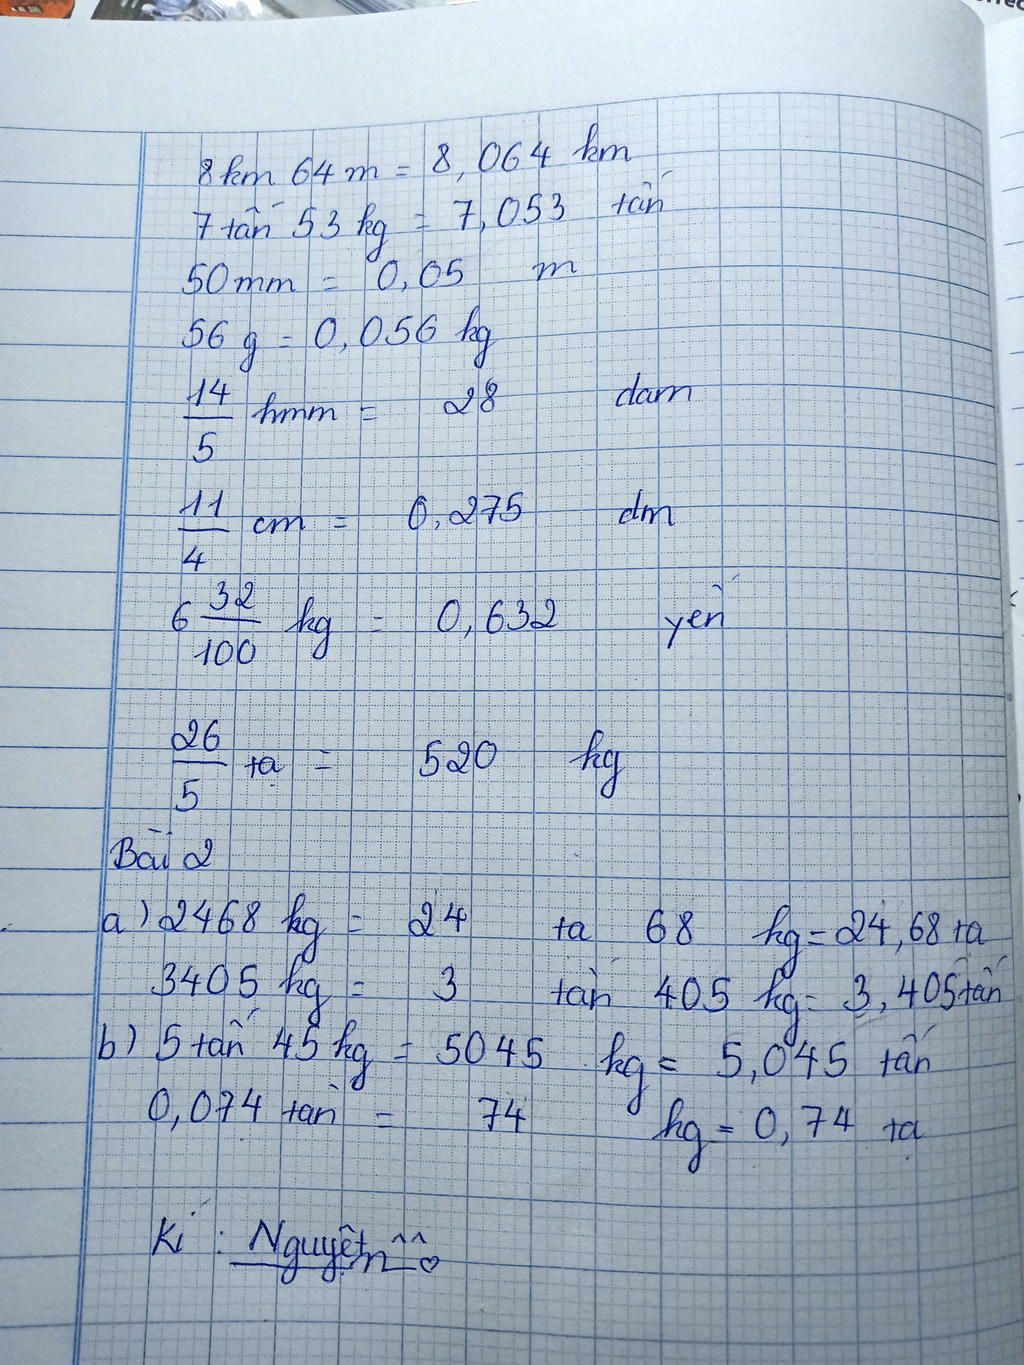 8km 64m = 8,064 km
7 tấn 53 kg = 7,053 tấn
50mm = 0,05 m
56 g = 0,056 kg
14/5 hmm = 28 dam
11/4 cm = 0,275 dm
6 32/100 kg = 0,632 yến
26/5 tạ = 520 kg
Bài 2
a) 2468 kg = 24 tạ 68 kg = 24,68 tạ
3405 kg = 3 tấn 405 kg = 3,405 tấn
b) 5 tấn 45 kg = 5045 kg = 5,045 tấn
0,074 tấn = 74 kg = 0,74 tạ
Kí : Nguyệt ^^